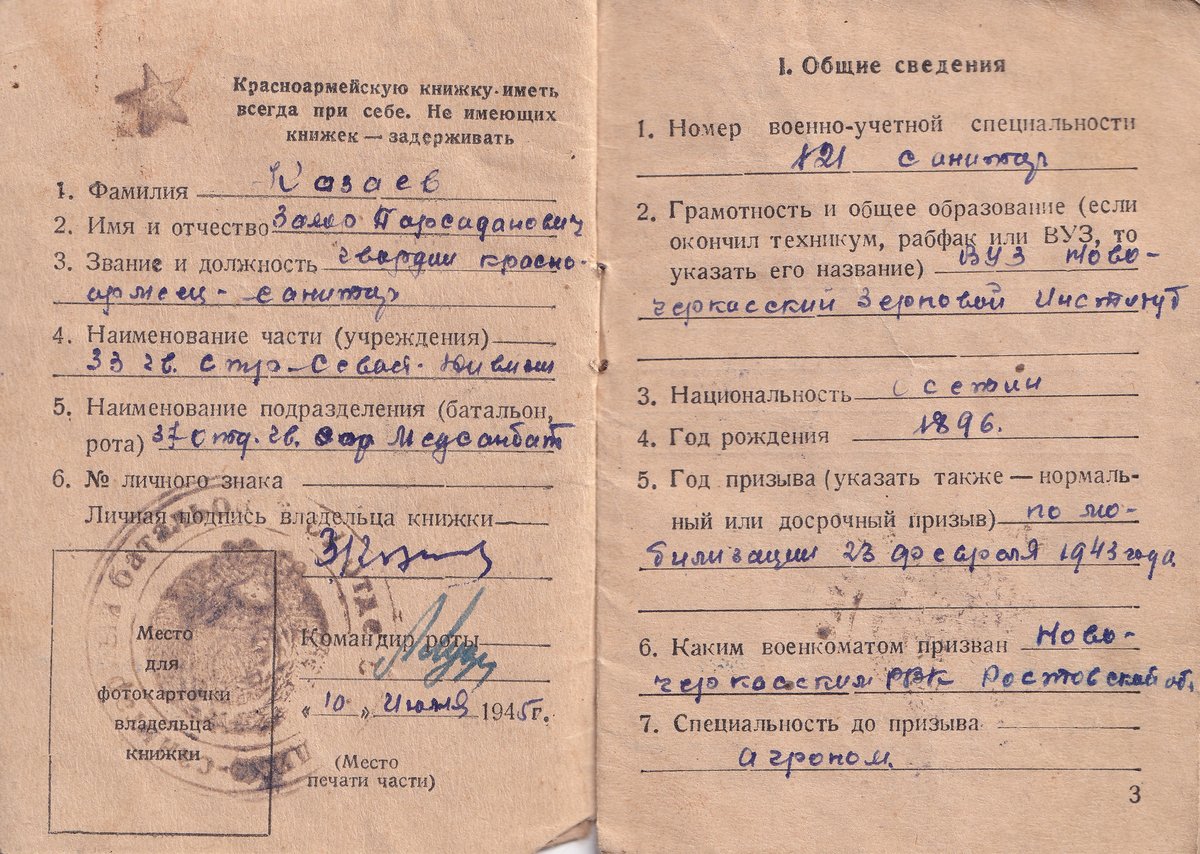 Красноармейскую книжку иметь
всегда при себе. Не имеющих
книжек — задерживать
1. Фамилия Казаев
2. Имя и отчество Зам Парсаданович
3. Звание и должность гвардии красно-
армеец - санитар
4. Наименование части (учреждения)
33 гв. стр. Севаст. Дивизии
5. Наименование подразделения (батальон,
рота) 37 отд. гв. Медсанбат
6. № личного знака
Личная подпись владельца книжки
Командир роты
«10» Июня 1945г.
(Место
печати части)
Место
для
фотокарточки
владельца
книжки
I. Общие сведения
1. Номер военно-учетной специальности
121 санитар
2. Грамотность и общее образование (если
окончил техникум, рабфак или ВУЗ, то
указать его название) ВУЗ Ново-
черкасский Зерновой Институт
3. Национальность Осетин
4. Год рождения 1896.
5. Год призыва (указать также — нормаль-
ный или досрочный призыв) по мо-
билизации 23 февраля 1943 года
6. Каким военкоматом призван Ново-
черкасским РВК Ростовской об.
7. Специальность до призыва
Агроном.
3